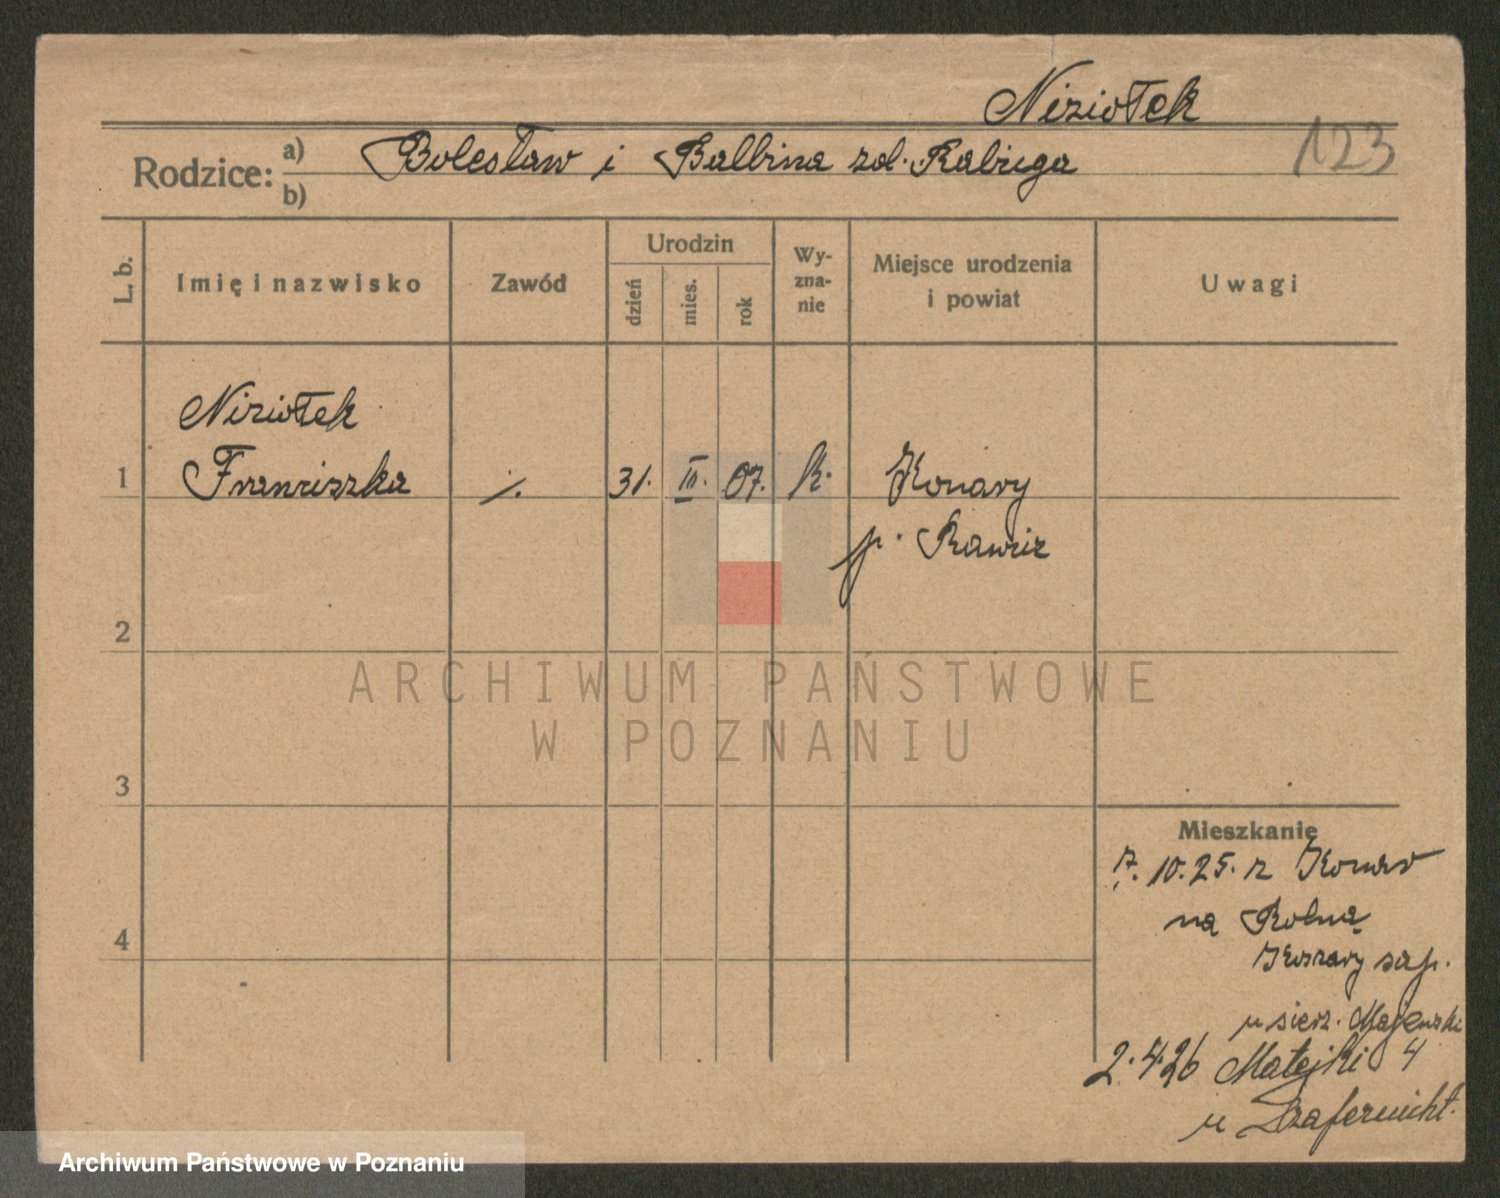 Niziołek
123
Rodzice: a) Bolesław i Balbina zd.
b)
L. b.
Imię i nazwisko
Zawód
Urodzin
dzień
mies.
rok
Wy-
zna-
nie
Miejsce urodzenia
i powiat
Uwagi
Niziołek
1 Franciszka ·/. 31. III. 07. k. Konary
p. Rawicz
2
3
4
Mieszkanie
7. 10. 25. z Konar
na Rolną
sap.
u sierż. Majewski
2.4.26 Matejki 4
u
ARCHIWUM PAŃSTWOWE
W POZNANIU
Archiwum Państwowe w Poznaniu